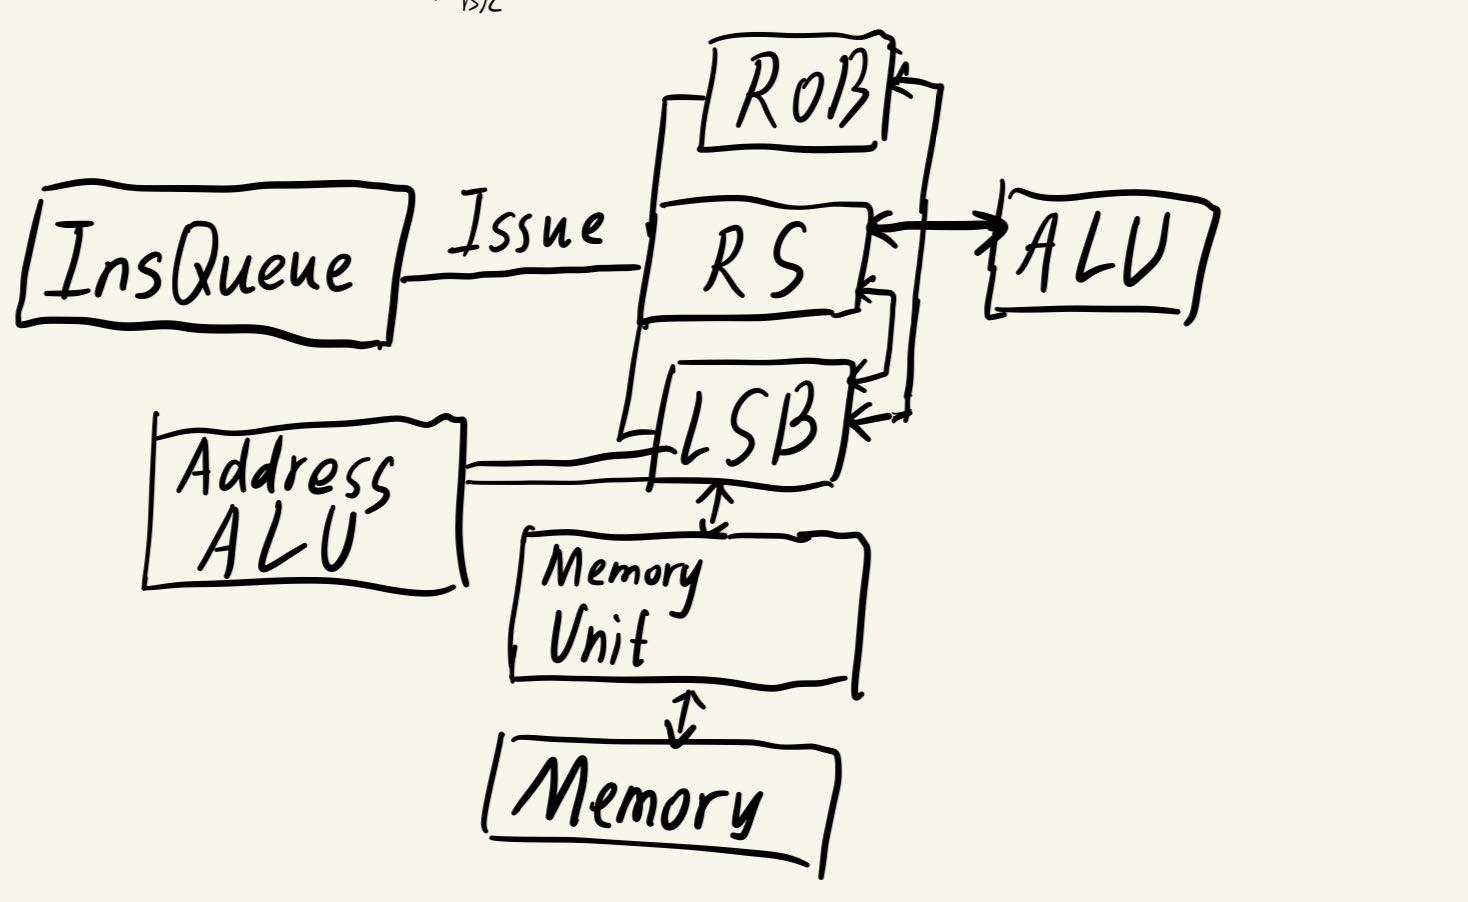 RoB
InsQueue
Issue
RS
ALU
LSB
Address
ALU
Memory
Unit
Memory